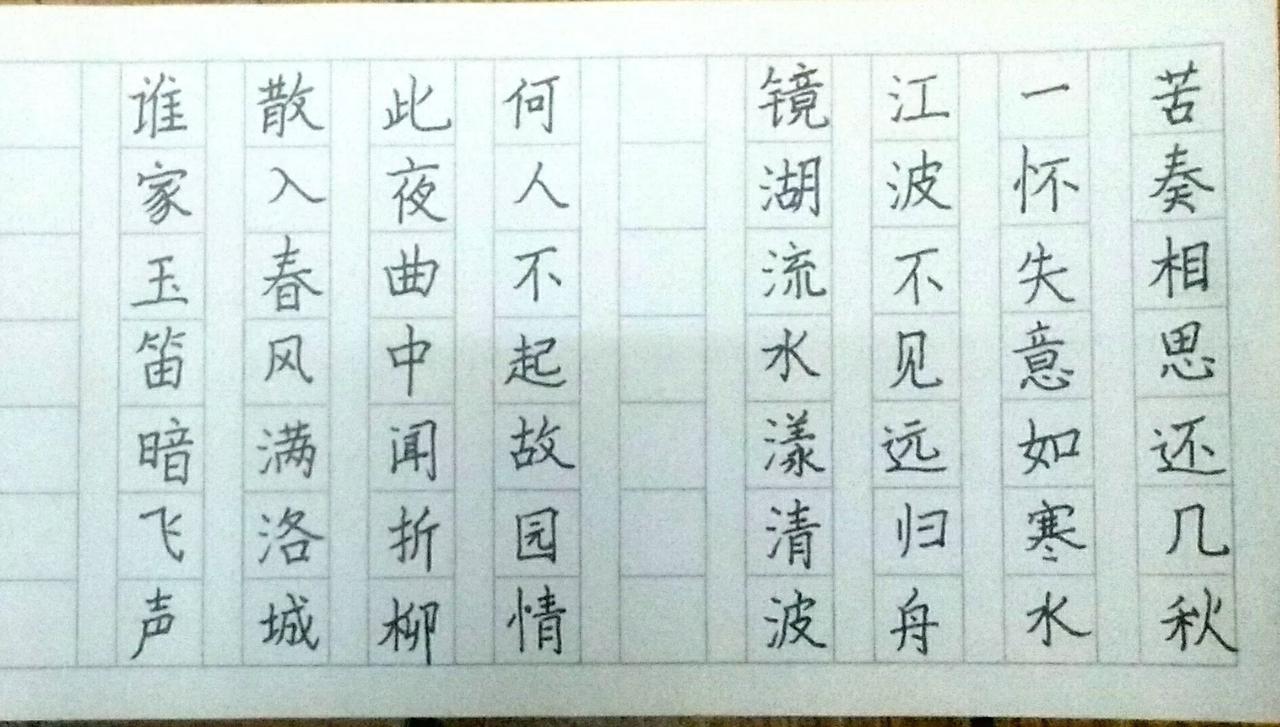 谁家玉笛暗飞声
散入春风满洛城
此夜曲中闻折柳
何人不起故园情
镜湖流水漾清波
江波不见远归舟
一怀失意如寒水
苦奏相思还几秋